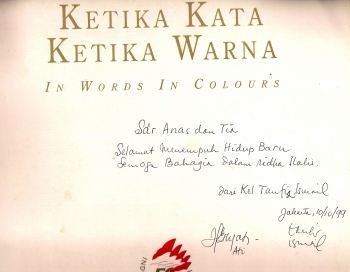 KETIKA KATA
KETIKA WARNA
IN WORDS IN COLOURS
Sdr. Anas dan Tia
Selamat Menempuh Hidup Baru
Semoga Bahagia dalam ridha Ilahi.
dari Kel Taufiq Ismail
Jakarta, 10/10/99
Ati
taufiq
ismail
50